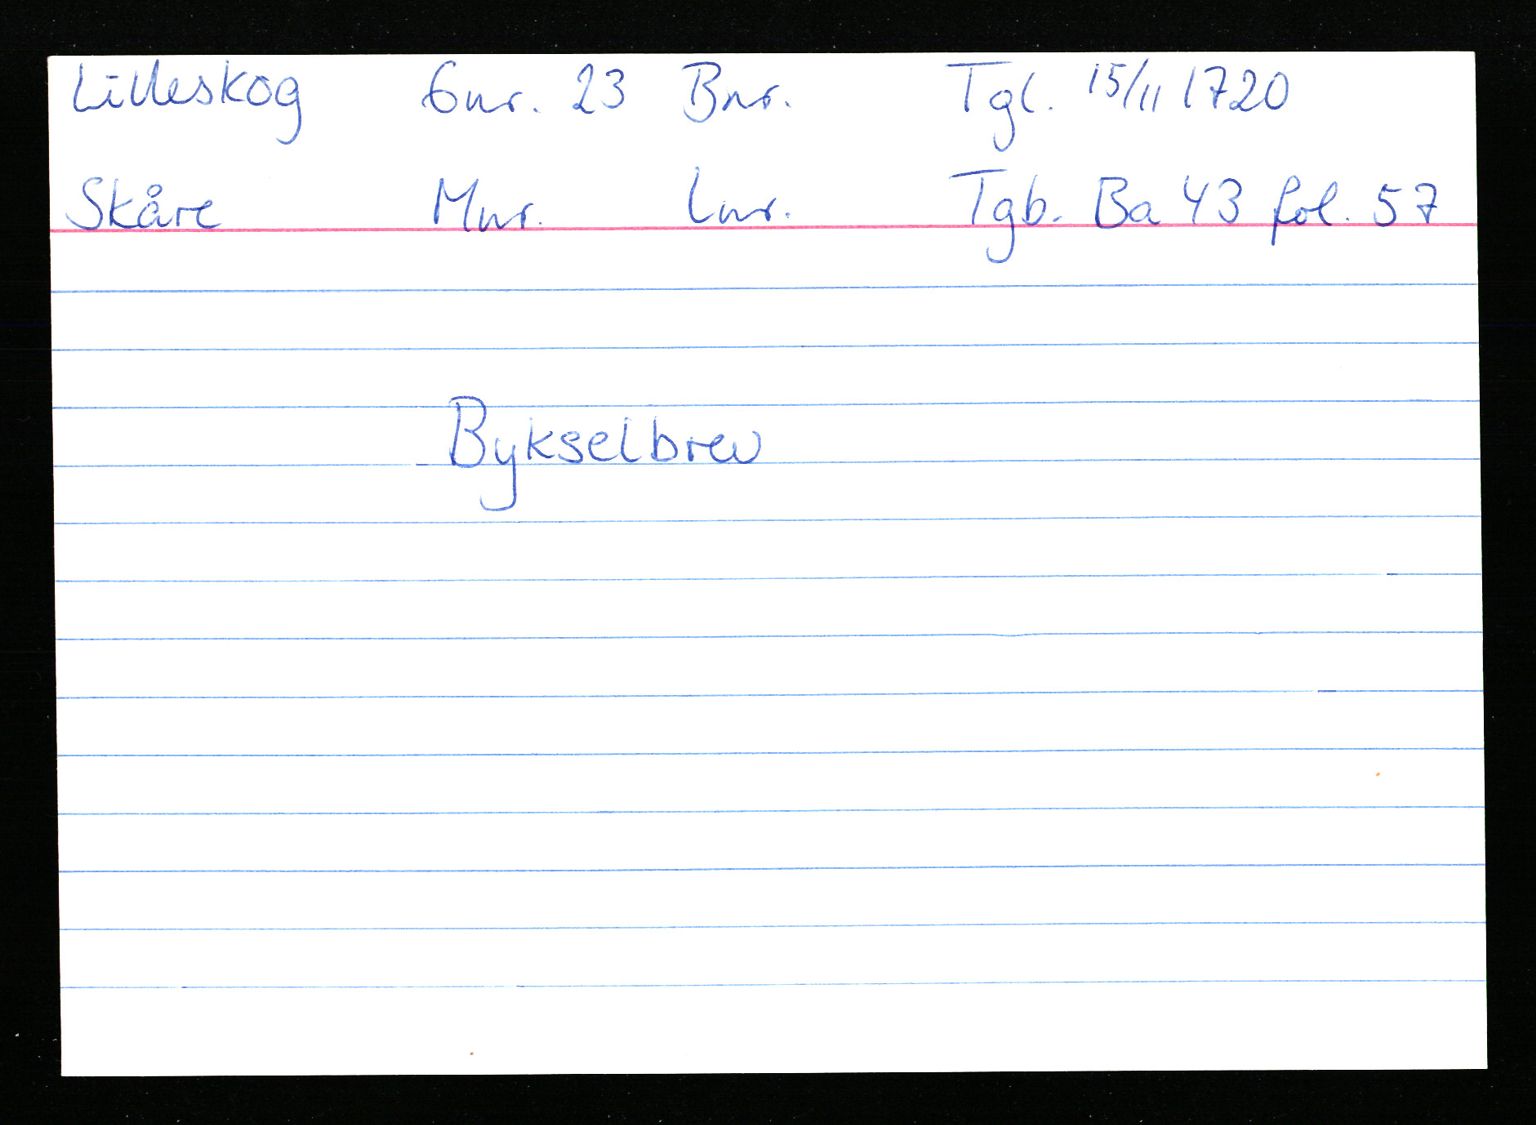 Lilleskog Gnr. 23 Bnr. Tgl. 15/11 1720
Skåre Mnr. Lnr. Tgb. Ba 43 fol. 57
Bykselbrev